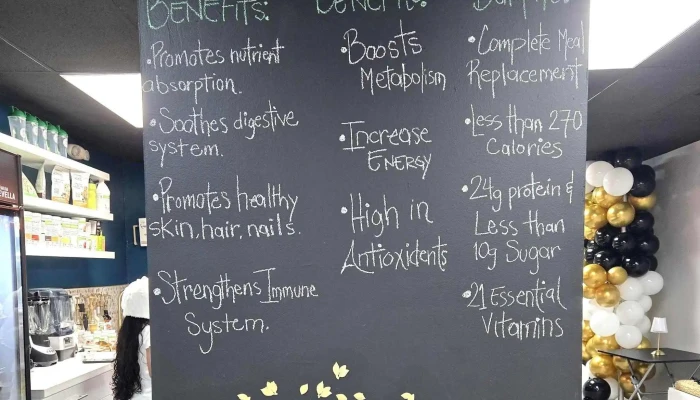 BENEFITS:
BENEFITS:
•Promotes nutrient
absorption.
•Soothes digestive
system.
•Promotes healthy
skin, hair, nails.
•Strengthens Immune
System.
•Boosts
Metabolism
•Increase
ENERGY
•High in
Antioxidents
•Complete Meal
Replacement
•Less than 270
Calories
•24g protein &
Less than
10g Sugar
•21 Essential
Vitamins